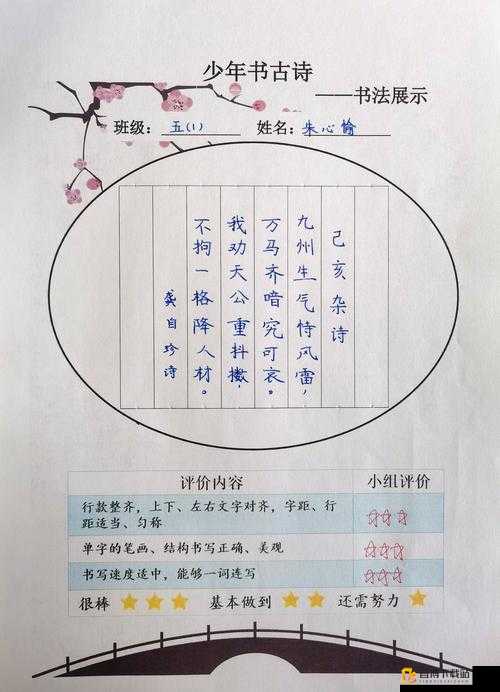 少年书古诗
——书法展示
班级：五(1) 姓名：朱心愉
己亥杂诗
九州生气恃风雷，
万马齐喑究可哀。
我劝天公重抖擞，
不拘一格降人材。
龚自珍诗
评价内容 小组评价
行款整齐，上下、左右文字对齐，字距、行
距适当、匀称
单字的笔画、结构书写正确、美观
书写速度适中，能够一词连写
很棒 基本做到 还需努力